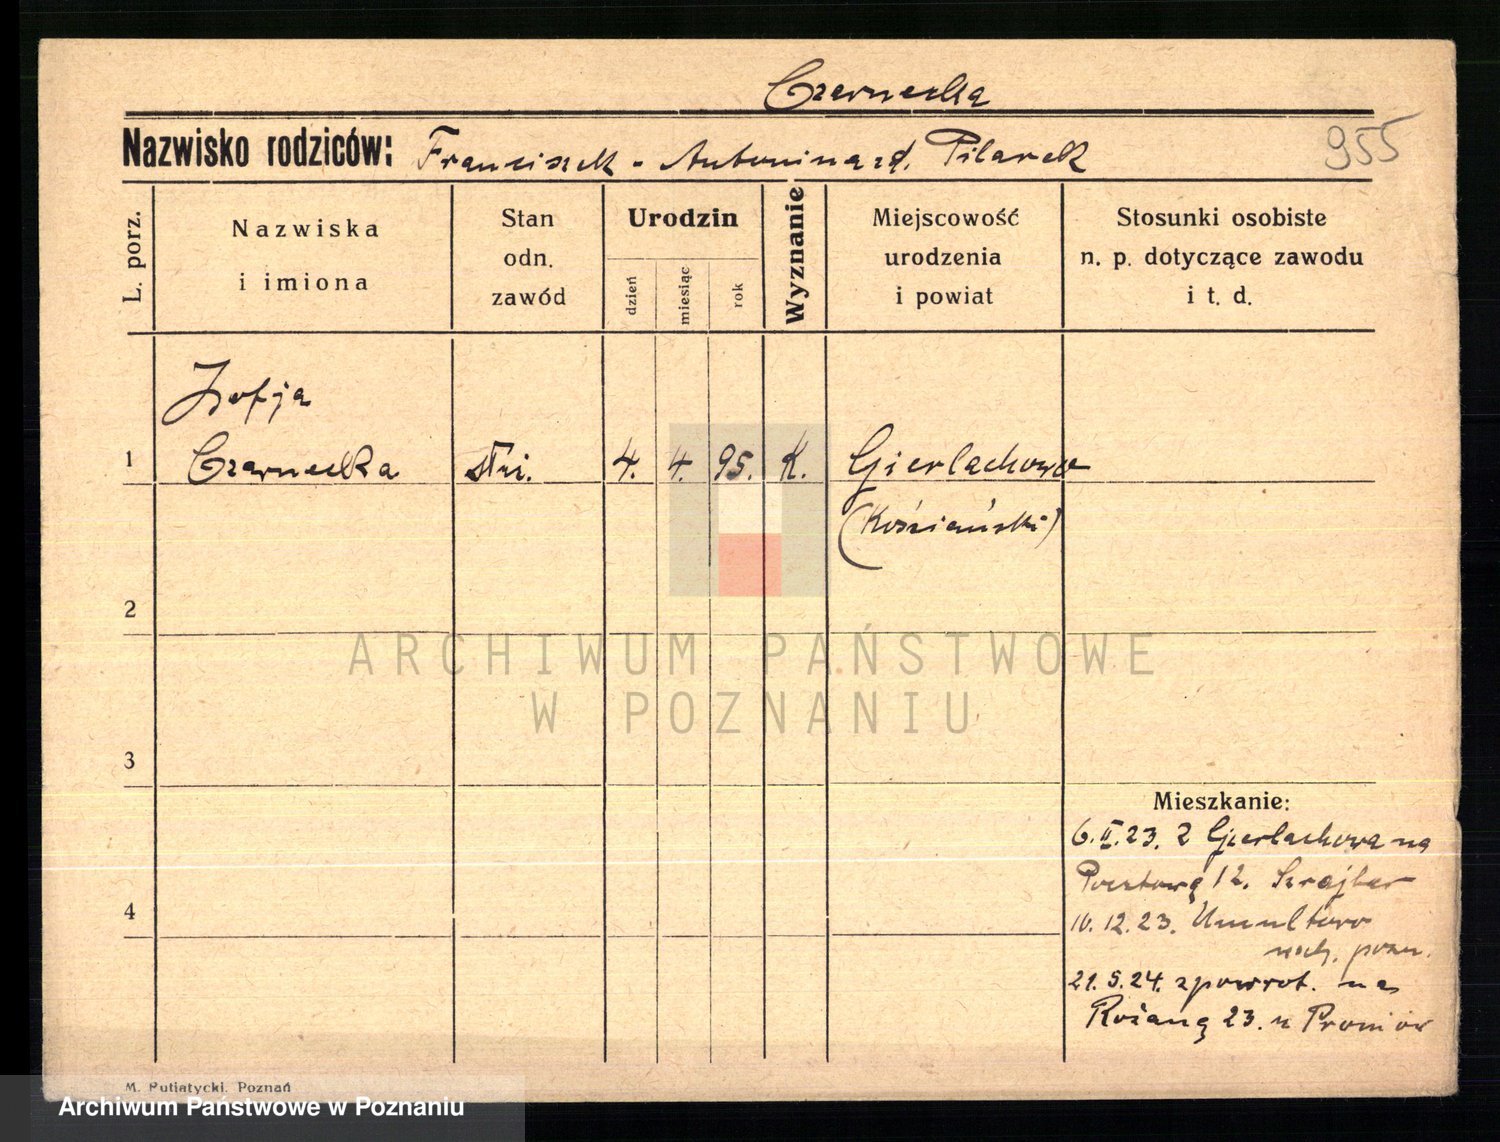 Czarnecka
Nazwisko rodziców: Franciszek - Antonina zd. Pilarek
955
L. porz.
Nazwiska
i imiona
Stan
odn.
zawód
Urodzin
dzień
miesiąc
rok
Wyznanie
Miejscowość
urodzenia
i powiat
Stosunki osobiste
n. p. dotyczące zawodu
i t. d.
Zofja
1 Czarnecka 4. 4. 95. K. Gierlachowo
(Kościański)
2
ARCHIWUM PAŃSTWOWE
W POZNANIU
3
Mieszkanie:
6.II.23. Z Gierlachowa na
Pocztową 12. Szrajber
4
10.12.23. Umultowo
pozn.
21.5.24. zpowrot. na
Różaną 23. u
M. Putiatycki. Poznań
Archiwum Państwowe w Poznaniu